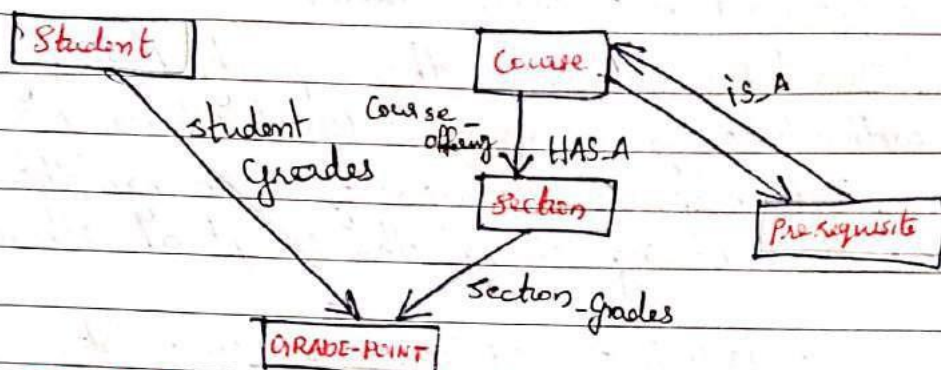 Student
Course
is_A
student
Grades
Course_
offering
HAS_A
Section
Prerequisite
Section_Grades
GRADE-POINT